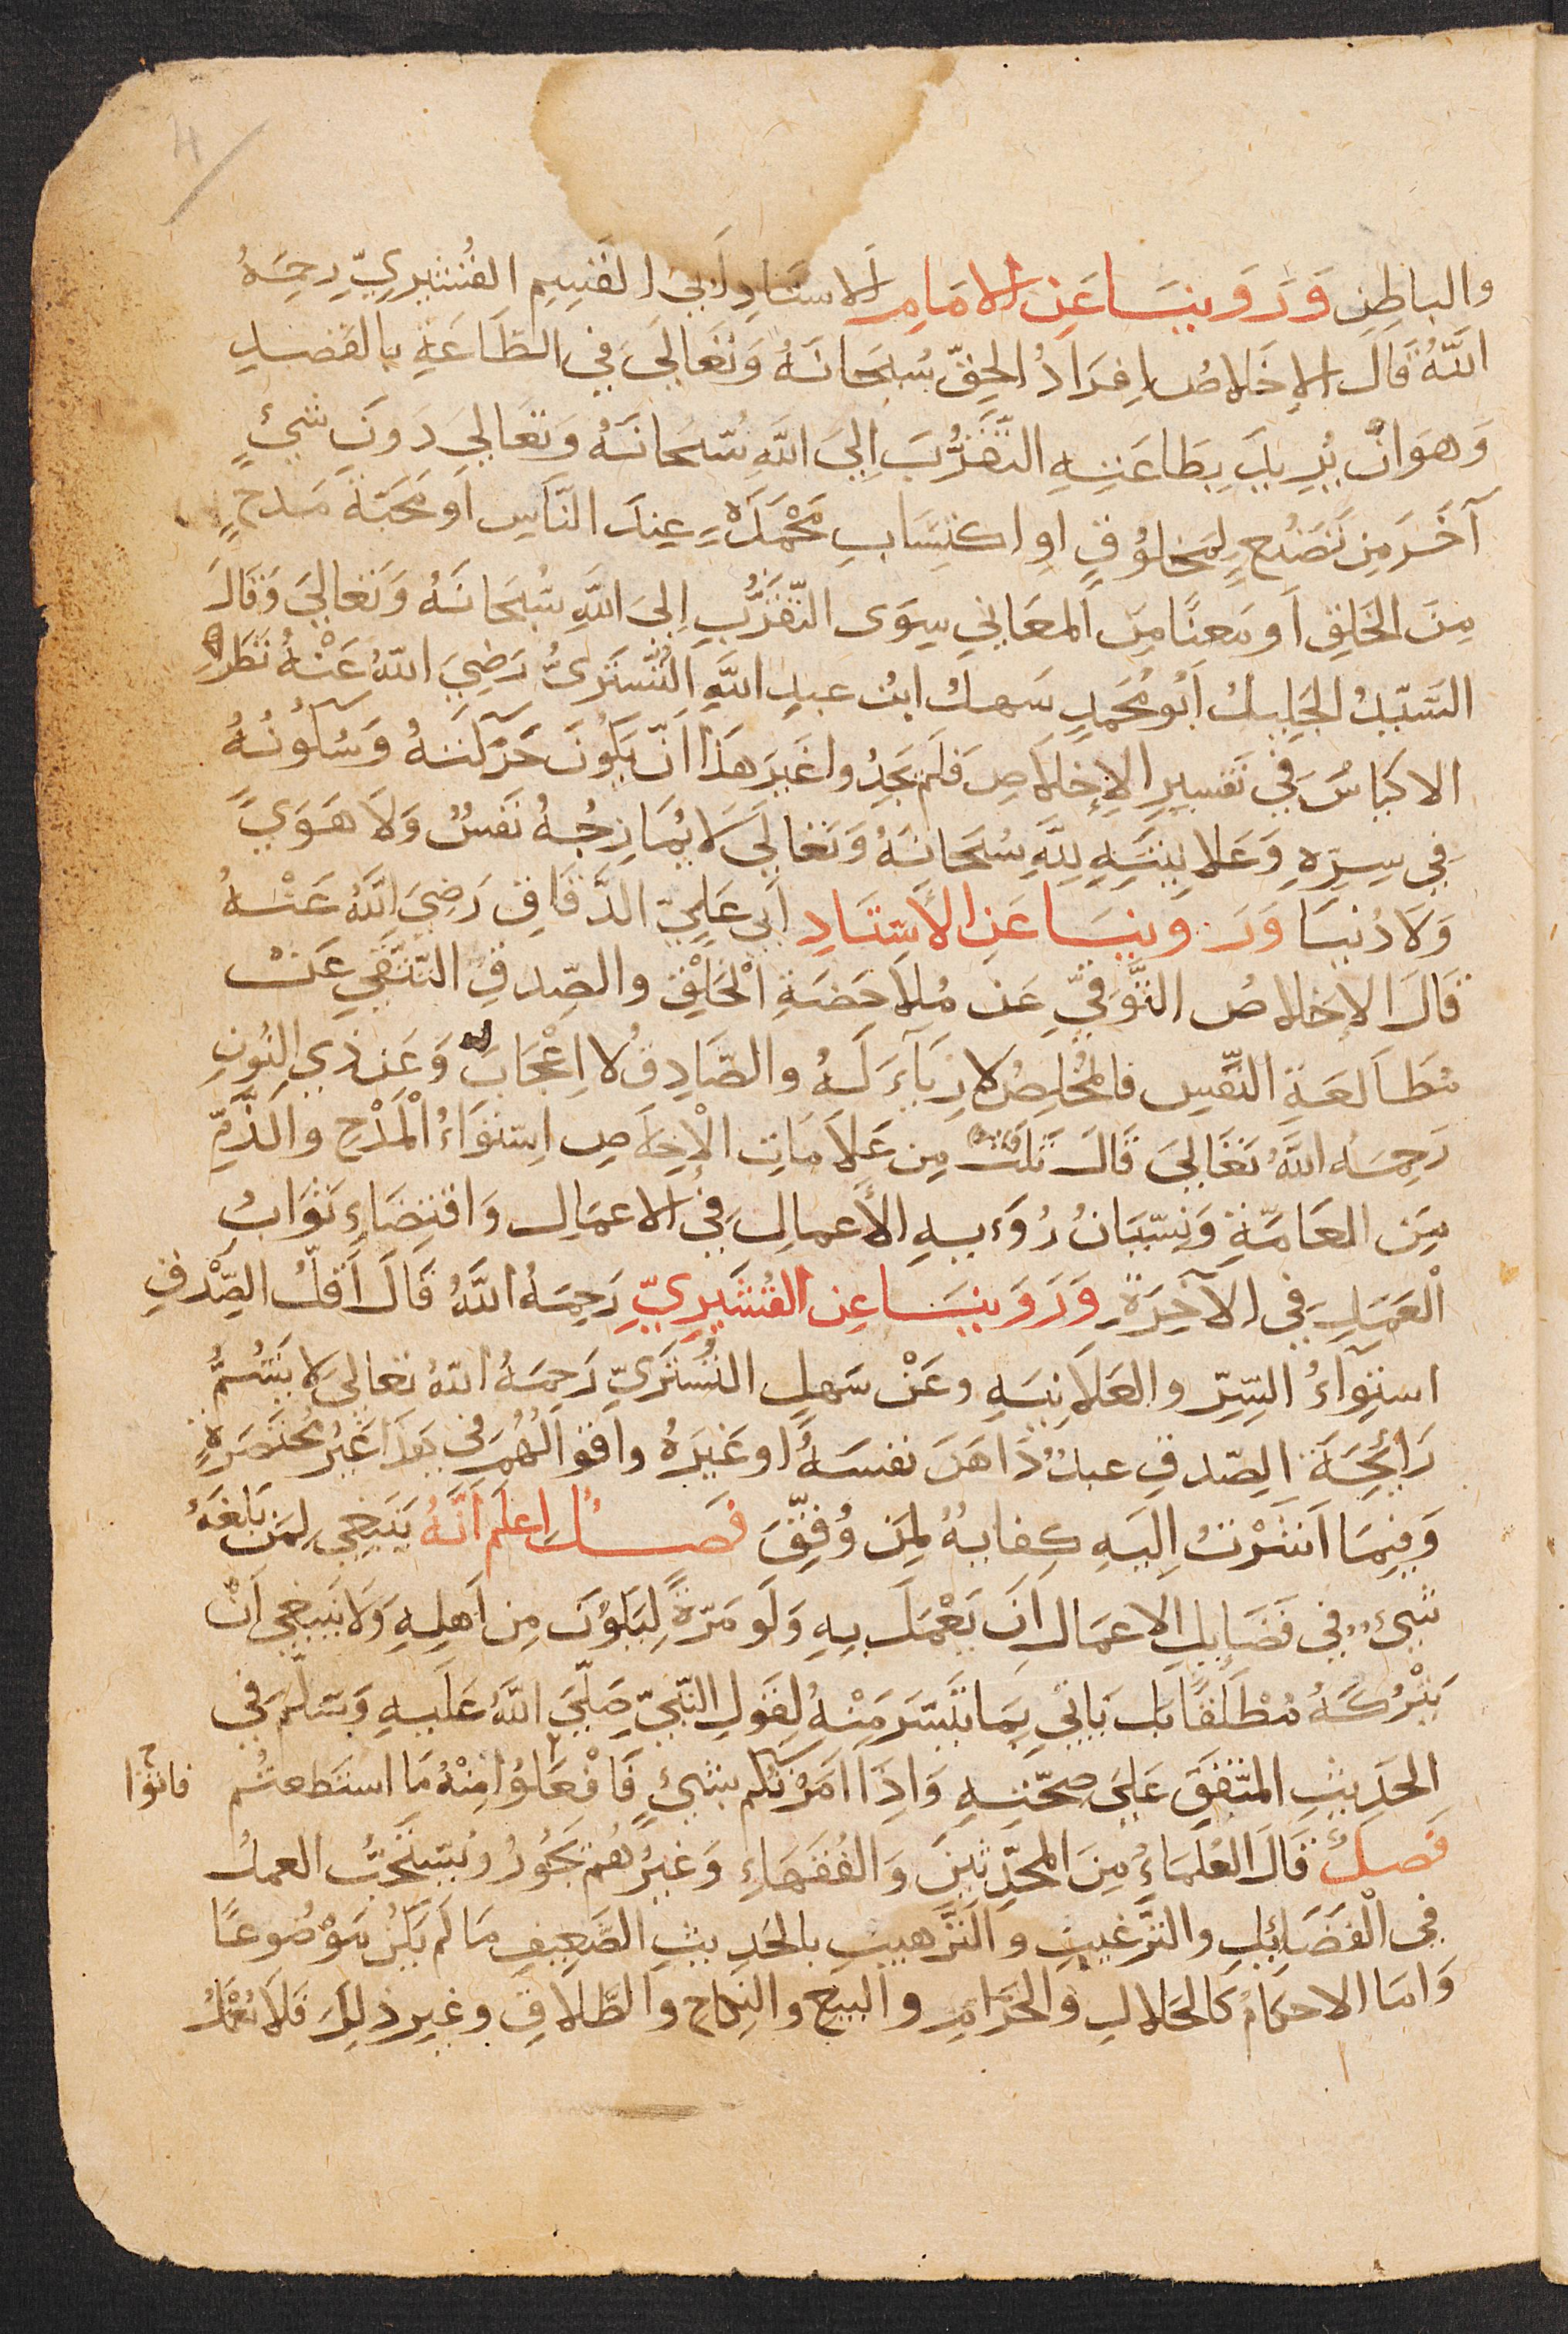 4
والباطِنِ وَرَوَيْنَا عَنِ الامَامِ الاستَادِ أَبي القَسِمِ القُشَيْرِيِّ رحِمَهُ
اللَّهُ قَالَ الإخَلاصُ إفرَادُ الحقّ سُبحَانَهُ وَتَعَالَى في الطَّاعَةِ بالقَصدِ
وَهوَ انْ يُرِيدَ بِطَاعَتِهِ التَّقَرُّبَ اِلىَ اللَّهِ سُبْحَانَهُ وَتَعَاليَ دَونَ شَيْءٍ
آخَرَ مِن تَصَنُّعٍ لمخلوُقٍ اوِ اكتِسَابِ مَحْمَدَةٍ عِندَ النَّاسِ اَو مَحَبّة مَدحٍ
مِنَ الخَلقِ اَو مَعنًا مِنَ المعَاني سِوَى التَّقَرُّبِ اِلىَ اللَّهِ سُبحَانَهُ وَتَعاليَ وَقَالَ
السَّيّدُ الجَلِيلُ اَبُو مُحَمدٍ سَهلُ ابنُ عبدِ اللَّهِ التُّسْتَريُّ رَضِيَ اللهُ عَنْهُ نَظَرَ
الاكيَاسُ في تَفسِيرِ الإخلَاصِ فَلَم يَجِدُوا غَيرَ هَذا اَنّ يَكوُنَ حَرَكَتهُ وَسُكُونُهُ
فِي سِرِهِ وَعَلانِيَتِهِ لِلَّهِ سُبحَانَهُ وَتَعَاليَ لَا يُمَازِجُهُ نَفسٌ وَلَا هَوَىً
وَلَا دُنيَا وَرَوَينَا عَنِ الأسْتَادِ اَبي عَلِيّ الدَّقّاقِ رَضِيَ اللَّهُ عَنْهُ
قَالَ الاِخلاصُ التَّوَقيِّ عَن مُلاحَضَةِ الْخَلْقِ والصِّدقِ التّنَقّي عَنْ
مُطَالَعَةِ النَّفسِ فالمُخْلِصُ لا رِيَآءَ لَهُ والصَّادِقُ لا اِعْجَابَ لَهُ وَعَن ذي النُونِ
رَحِمَهُ اللَّهُ تَعَاليَ قَالَ ثَلَثٌ مِن عَلاَمَاتِ الْإخلَاصِ اِستوَاءُ الْمَدْحِ والذَّمِّ
مِنَ العَامّةِ وَنِسّيَانُ رُوءَيهِ الأعمالِ في الاعمَالِ وَاقتِضَاءِ ثوَابُ
الْعَمَلِ في الآخِرَةِ وَرَوَينَا عِن القُشَيرِيّ رَحِمَهُ اللَّهُ قَالَ اَقلُّ الصِّدْقِ
استِوَآءُ السِّرّ والعَلاَنِيَهِ وعَنْ سَهلٍ التُّسْتَرَيّ رَحِمَهُ اللهُ تعَاليَ لا يَشُمُّ
رَائِحَةَ الصّدقِ عبدٌ دَاهَنَ نفسَهُ او غَيرَهُ واقوالُهُم في هَذا غَيْرُ مُختَصَرَةٍ
وَفيمَا اَشَرْتُ اِليَهِ كِفايهٌ لِمَن وُفِّقَ فصلٌ اِعلَم اَنَّهُ يَنبَغِي لِمَن بَلغَهُ
شَيْءٌ في فَضَايِلِ الاَعمَالِ اَن يَعْمَلَ بِهِ وَلَو مَرّةً لِيَكوُنَ مِن اَهلِهِ وَلَا يَنبَغِي اَنْ
يَتْرُكَهُ مُطْلَقًا بَل يَاتِي بِمَا تَيَسَّرَ مَنْهُ لِقَولِ النّبيّ صَلّيَ اللَّهُ عَلَيهِ وَسَلّم في
الحَدِيثِ المتّفقِ عَلىَ صحّتِهِ وَاِذَا اَمَرْتُكُم بِشَيْءٍ فَافْعَلوُا مِنْهُ مَا استَطَعتُم فاتوُا
فَصلٌ قَالَ العُلمَاءُ مِنَ المحَدِّثينَ وَالفُقَهَاءِ وَغَيْرُهُم يَجُوزُ ويُسْتَحَبُّ العملُ
فِي الْفَضَائِلِ والتَّرغيبِ وَالتَّرهيبِ بالحَدِيثِ الضَّعيفِ مَا لَم يَكُن مَوْضُوعًا
وَامَا الاحكَام كَالحَلالِ والحَرَامِ والبيع والنِكاح والطّلاقِ وغيرِ ذلِكَ فَلاَ يُعْمَلُ